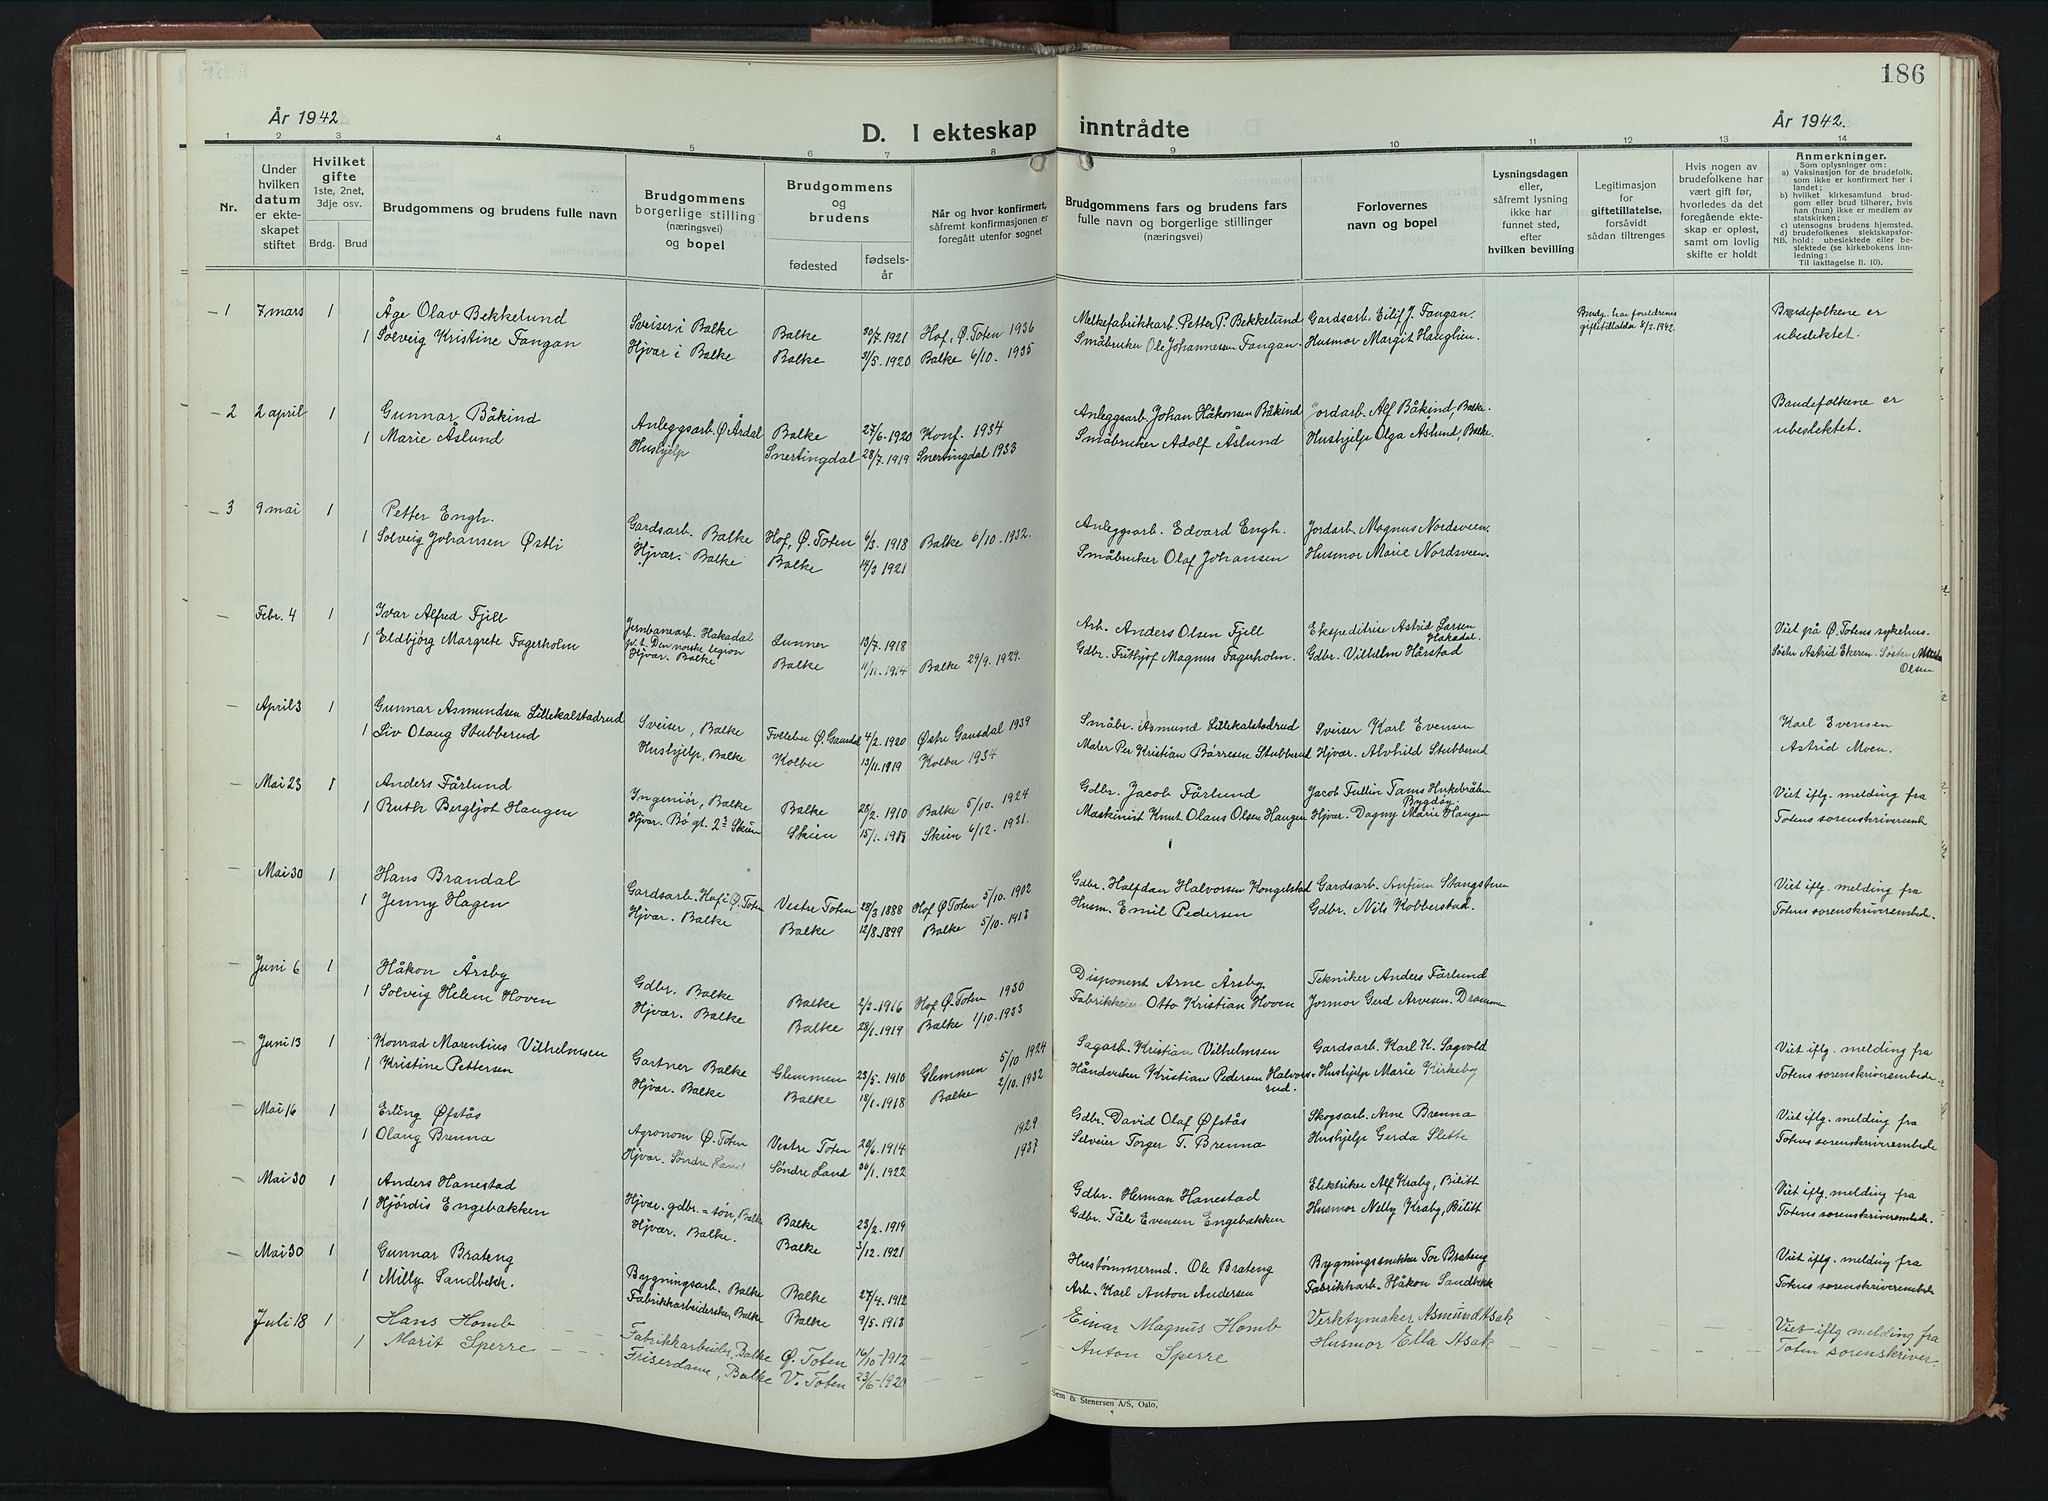 186
År 1942
D. I ekteskap inntrådte
År 1942.
1 2 3 4 5 6 7 8 9 10 11 12 13 14
Nr.
Under hvilken datum er ekteskapet stiftet
Hvilket gifte 1ste, 2net, 3dje osv.
Brdg. Brud
Brudgommens og brudens fulle navn
Brudgommens borgerlige stilling (næringsvei) og bopel
Brudgommens og brudens
fødested
fødselsår
Når og hvor konfirmert, såfremt konfirmasjonen er foregått utenfor sognet
Brudgommens fars og brudens fars fulle navn og borgerlige stillinger (næringsvei)
Forlovernes navn og bopel
Lysningsdagen eller, såfremt lysning ikke har funnet sted, efter hvilken bevilling
Legitimasjon for giftetillatelse, forsåvidt sådan tiltrenges
Hvis nogen av brudefolkene har vært gift før, hvorledes da det foregående ekteskap er opløst, samt om lovlig skifte er holdt
Anmerkninger.
Som oplysninger om:
a) Vaksinasjon for de brudefolk, som ikke er konfirmert her i landet;
b) hvilket kirkesamfund brudgom eller brud tilhører, hvis han (hun) ikke er medlem av statskirken;
c) utensogns brudens hjemsted.
d) brudefolkenes slektskapsforhold: ubeslektede eller beslektede (se kirkebokens innledning:
NB.
Til iakttagelse II. 10).
1 7 mars 1 Åge Olav Bekkelund Sveiser i Balke Balke 20/7. 1921 Hof, Ø. Toten 1936 Melkefabrikkarb. Petter P. Bekkelund Gardsarb. Eilif J. Fangan. Brudg. har foreldrenes giftetillatelse 8/2. 1942. Brudefolkene er
1 Solveig Kristine Fangan Hjvar i Balke Balke 31/5. 1920 Balke 6/10. 1935 Småbruker Ole Johannesen Fangan. Husmor Margit Hauglien. ubeslektet.
2 2 april 1 Gunnar Båkind Anleggsarb. Ø. Årdal Balke 27/6. 1920 Konf. 1934 Anleggsarb. Johan Håkonsen Båkind Jordarb. Alf Båkind, Balke. Brudefolkene er
1 Marie Åslund Hushjelp Snertingdal 28/7. 1919 Snertingdal 1933 Småbruker Adolf Åslund Hushjelp Olga Åslund, Balke. ubeslektet.
3 9 mai 1 Petter Engh. Gardsarb. Balke Hof, Ø. Toten 6/3. 1918 Balke 6/10. 1932. Anleggsarb. Edvard Engh. Jordarb. Magnus Nordsveen.
1 Solveig Johansen Østli Hjvar. Balke Balke 14/3 1921 Småbruker Olaf Johansen Husmor Marie Nordsveen.
- Febr. 4 1 Ivar Alfred Fjell Jernbanearb. Hakadal Lunner 13/7. 1918 Arb. Anders Olsen Fjell Ekspeditrise Astrid Larsen Hakadal. Viet på Ø. Totens sykehus.
Den norske legion
1 Eldbjørg Margrete Fagerholm Hjvar. Balke Balke 11/11. 1914 Balke 29/9. 1929. Gdbr. Frithjof Magnus Fagerholm. Gdbr. Vilhelm Hårstad Søster Astrid Ekeren. Søster Olsen
- April 3 1 Gunnar Asmundsen Lillekalstadrud Sveiser, Balke Follebu Ø. Gausdal 4/2. 1920 Østre Gausdal 1934 Småbr. Asmund Lillekalstadrud Sveiser Karl Evensen Karl Evensen
1 Liv Olaug Stubberud Hushjelp, Balke Kolbu 13/11. 1919 Kolbu 1934 Maler Per Kristian Børresen Stubberud Hjvar. Alvhild Stubberud Astrid Moen.
- Mai 23 1 Anders Fårlund Ingeniør, Balke Balke 28/2. 1910 Balke 5/10. 1924 Gdbr. Jacob Fårlund Jacob Fullin Bygdøy. Viet iflg. melding fra
1 Ruth Bergljot Haugen Hjvar. Bø gt. 2 Skien Skien 15/1. 1913 Skien 6/12. 1931. Maskinist Knut Olaus Olsen Haugen Hjvar. Dagny Marie Haugen Totens sorenskriveremb.
- Mai 30 1 Hans Brandal Gardsarb. Hof i Ø. Toten Vestre Toten 28/3 1888 Hof Ø. Toten 5/10. 1902 Gdbr. Halfdan Halvorsen Kongelstad Gardsarb. Anfinn Stangstuen Viet iflg. melding fra
1 Jenny Hagen Hjvar. Balke Balke 12/8. 1899 Balke 5/10. 1913 Husm. Emil Pedersen Gdbr. Nils Kobberstad. Totens sorenskriverembede.
- Juni 6 1 Håkon Årsby Gdbr. Balke Balke 2/3. 1916 Hof Ø. Toten 1930 Disponent Arne Årsby Tekniker Anders Fårlund
1 Solveig Helene Hoven Hjvar. Balke Balke 28/1. 1919 Balke 1/10. 1933 Fabrikkeier Otto Kristian Hoven Josmor Gerd Arvesen. Drammen
- Juni 13 1 Konrad Marentius Vilhelmsen Gartner Balke Glemmen 23/5. 1910 Glemmen 5/10 1924 Sagarb. Kristian Vilhelmsen Gardsarb. Karl K. Sagvold Viet iflg. melding fra
1 Kristine Pettersen Hjvar. Balke Balke 18/1. 1918 Balke 2/10. 1932 Håndverker Kristian Pedersen Halvorsrud. Hushjelp Marie Kirkeby Totens sorenskriverembede
- Mai 16 1 Erling Øfstås Agronom Ø. Toten Vestre Toten 28/6. 1914 1929 Gdbr. David Olaf Øfstås Skogsarb. Arne Brenna Viet iflg. melding fra
1 Olaug Brenna Hjvar. Søndre Land Søndre Land 30/1. 1922 1937 Selveier Torger T. Brenna Hushjelp Gerda Slette Totens sorenskriverembede.
- Mai 30 1 Anders Hanestad Hjvar. gdbr. = søn, Balke Balke 23/2. 1919 Gdbr. Herman Hanestad Elektriker Alf Kraby, Bilitt Viet iflg. melding fra
1 Hjørdis Engebakken Hjvar. Balke. Balke 3/12. 1921 Gdbr. Tåle Evensen Engebakken Husmor Nelly Kraby, Bilitt Totens sorenskriverembede.
- Mai 30 1 Gunnar Brateng Bygningsarb. Balke Balke 27/4. 1912 Hustømmermd. Ole Brateng Bygningssnekker Tor Brateng Viet iflg. melding fra
1 Milly Sandbekk. Fabrikkarbeiderske Balke Balke 9/5. 1913 Arb. Karl Anton Andersen Fabrikkarb. Håkon Sandbekk Totens sorenskriverembede
Juli 18 1 Hans Homb Fabrikkarbeider, Balke Ø. Toten 16/10 - 1912 Einar Magnus Homb Verktymaker Asmund Asak Viet iflg melding fra
1 Marit Sperre Friserdame, Balke V. Toten 23/6 - 1920 Anton Sperre Husmor Ella Asak Toten sorenskriver.
Sem & Stenersen A/S, Oslo,